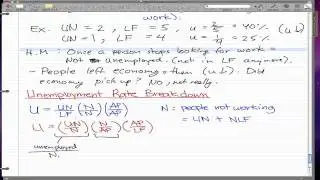 work).
Ex. UN = 2, LF = 5, u = 2/5 = 40% (u↓)
UN = 1, LF = 4, u = 1/4 = 25%
H.M: Once a person stops looking for work =
Not unemployed. (not in LF anymore).
- People left economy = then (u↓). Did
economy pick up? No, not really.
Unemployment Rate Breakdown
U = (UN/LF)(N/N)(AP/AP) N = people not working
U = (UN/N)(N/AP)(AP/LF) = UN + NLF
unemployed
N.